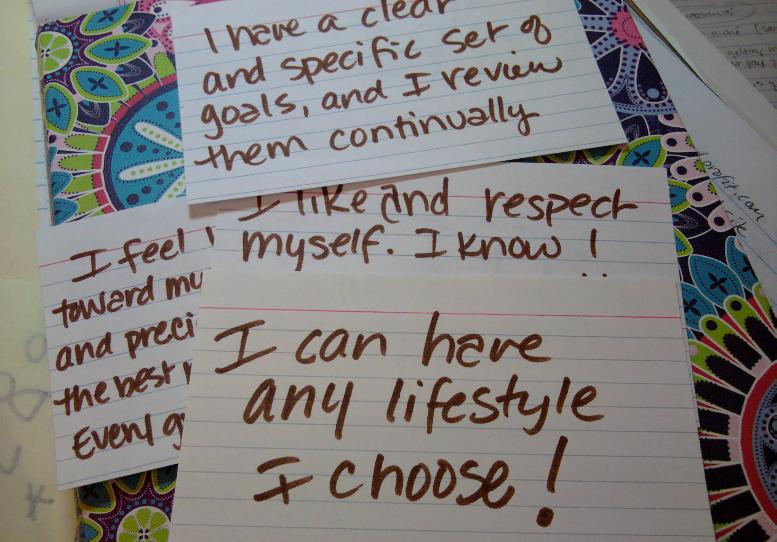 I have a clear
and specific set of
goals, and I review
them continually
I like and respect
myself. I know I
I feel
toward my
and preci
the best
Even g
I can have
any lifestyle
I choose!